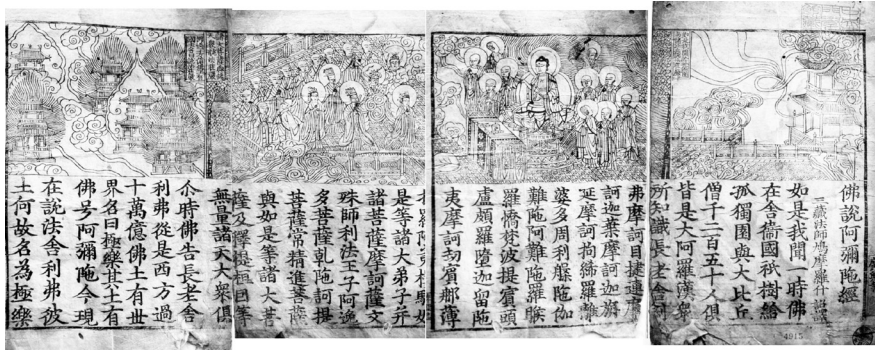 佛說阿彌陁經
三藏法師鳩摩羅什詔譯
如是我聞一時佛
在舍衞國祇樹給
孤獨園與大比丘
僧千二百五十人俱
皆是大阿羅漢衆
所知識長老舍利
弗摩訶目揵連摩
訶迦葉摩訶迦旃
延摩訶拘絺羅離
婆多周利槃陁伽
難陁阿難陁羅睺
羅憍梵波提賓頭
盧頗羅墮迦留陁
夷摩訶劫賓那薄
是等諸大弟子并
諸菩薩摩訶薩文
殊師利法王子阿逸
多菩薩乾陁訶提
菩薩常精進菩薩
與如是等諸大菩
薩及釋提桓因等
無量諸天大衆俱
尒時佛告長老舍
利弗從是西方過
十萬億佛土有世
界名曰極樂其土有
佛号阿彌陁今現
在說法舍利弗彼
土何故名為極樂
4915